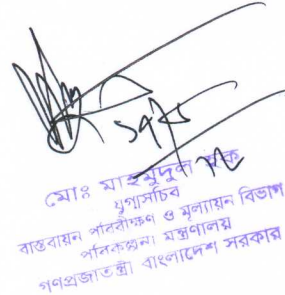 মোঃ মাহমুদুল হক
যুগ্মসচিব
বাস্তবায়ন পরিবীক্ষণ ও মূল্যায়ন বিভাগ
পরিকল্পনা মন্ত্রণালয়
গণপ্রজাতন্ত্রী বাংলাদেশ সরকার